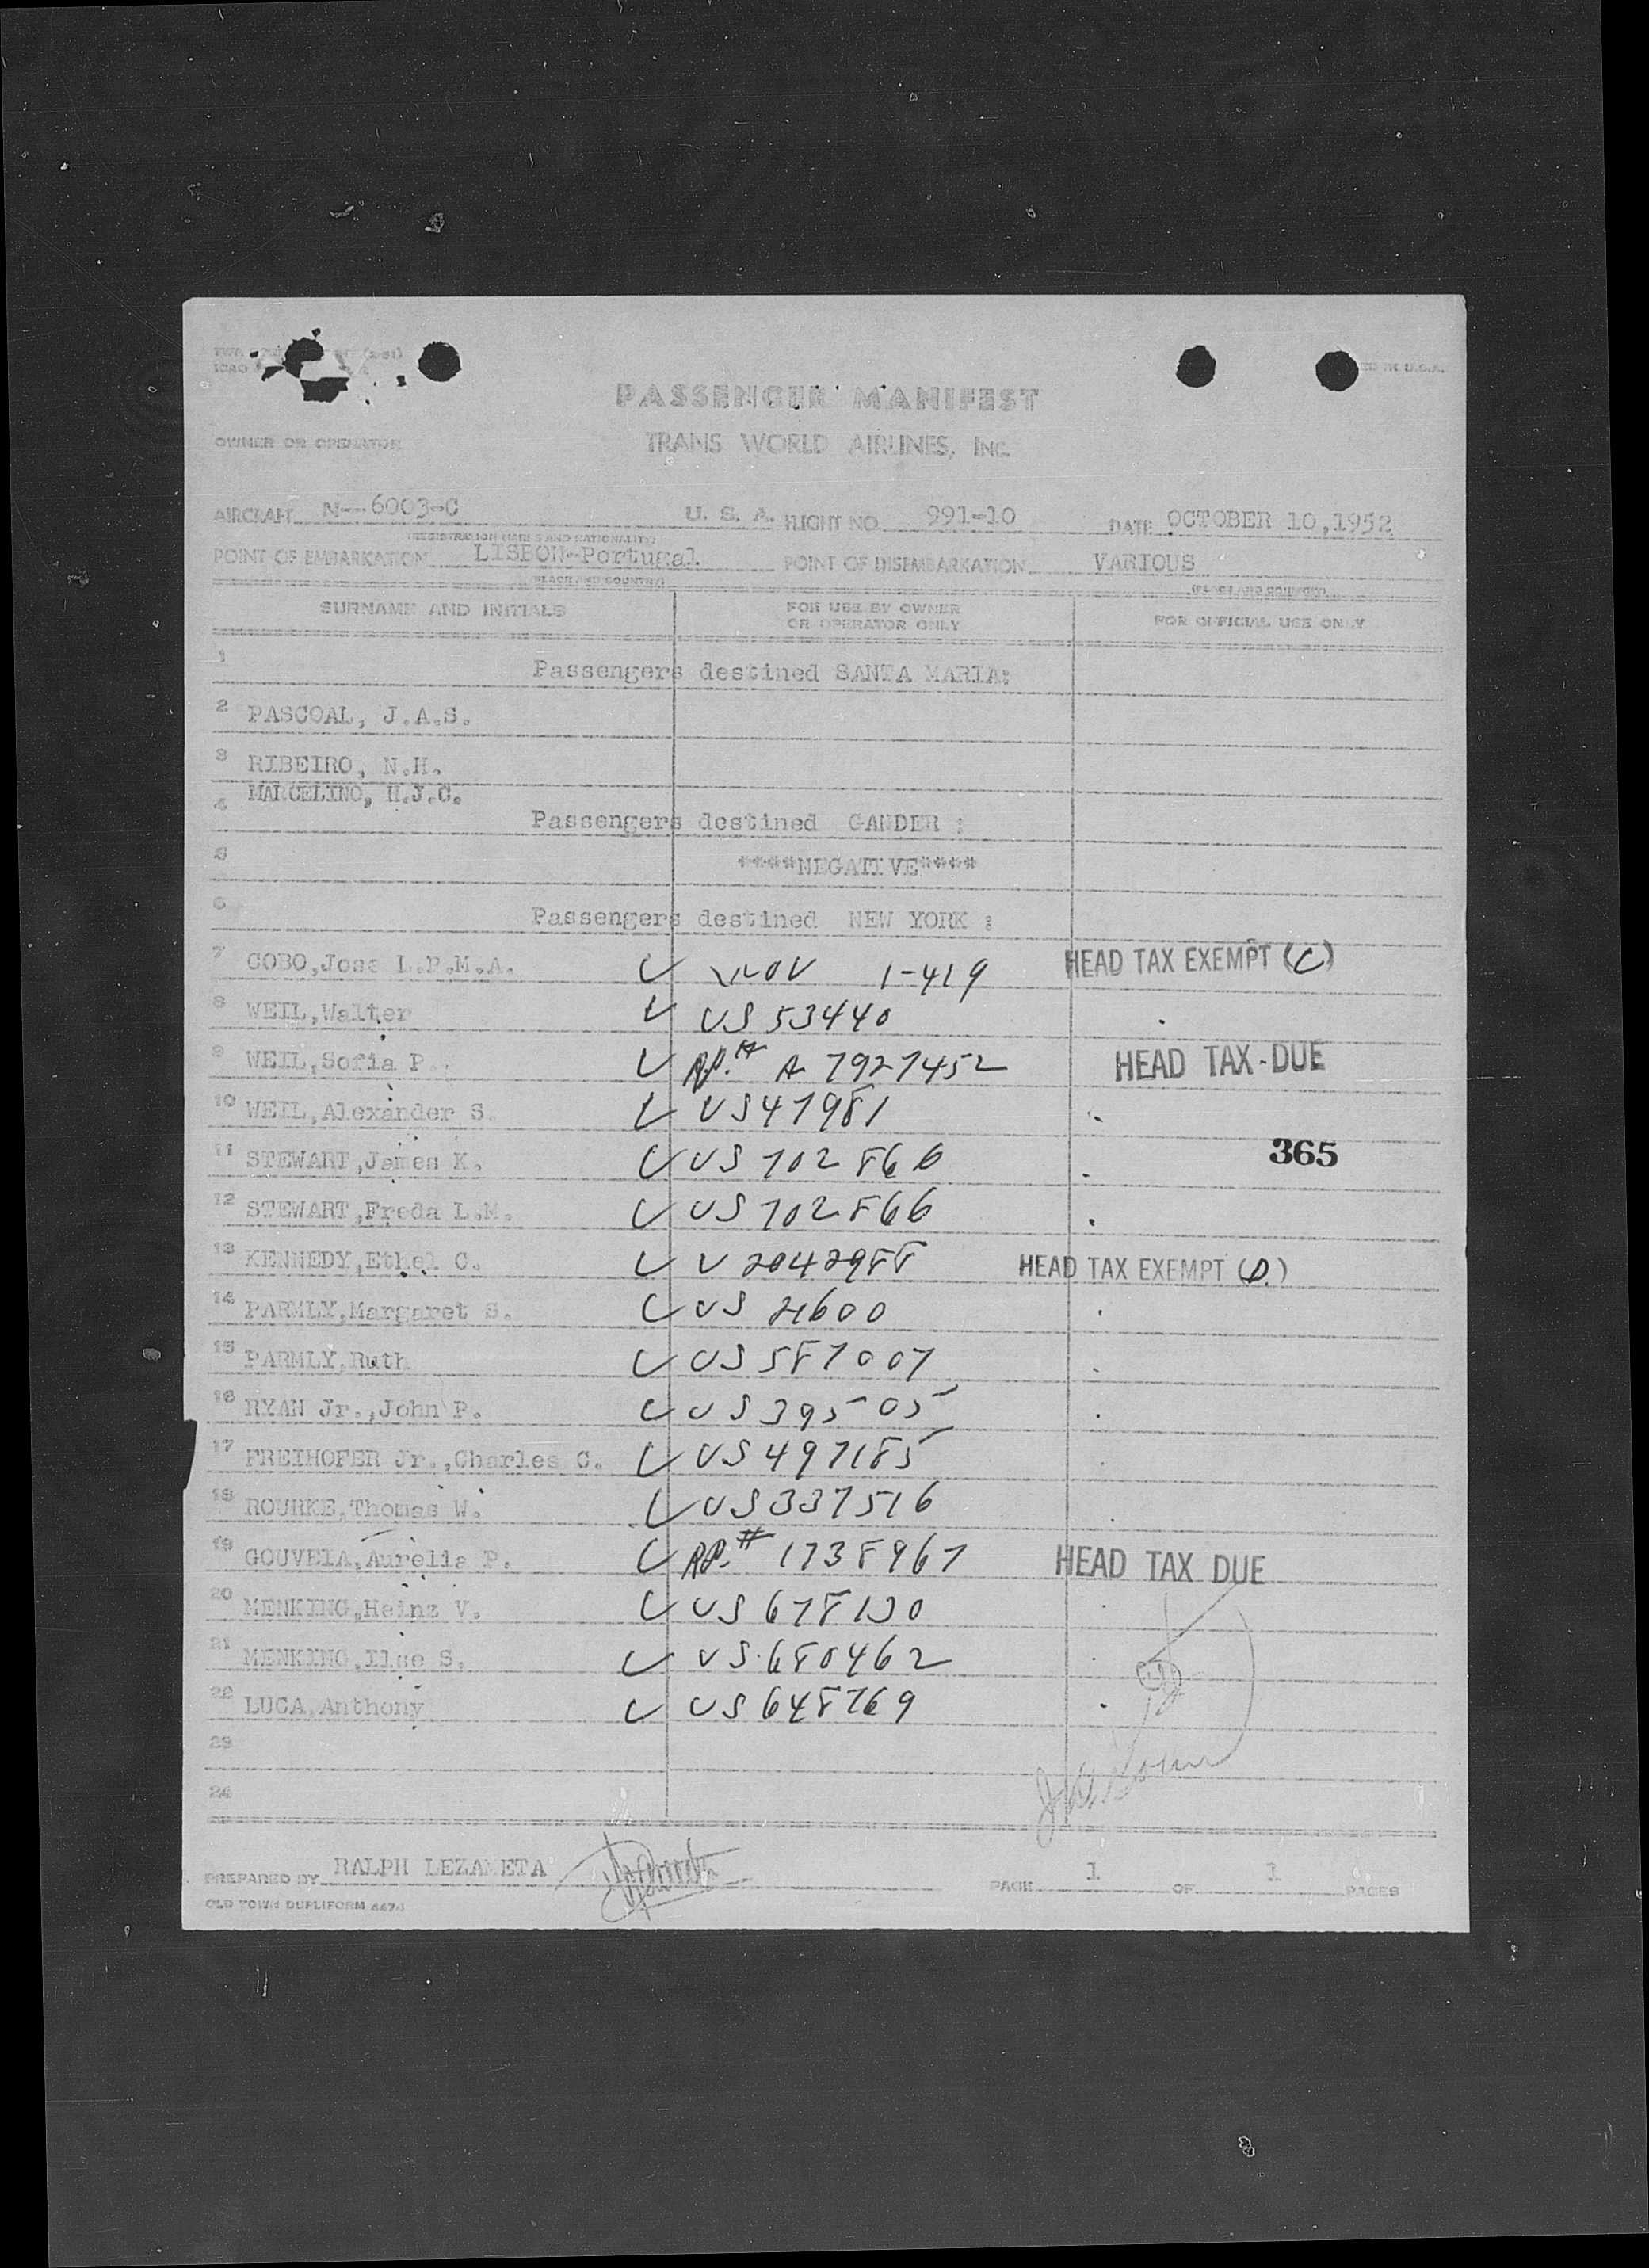 PASSENGER MANIFEST
OWNER OR OPERATOR TRANS WORLD AIRLINES, INC.
AIRCRAFT N--6003-C U. S. A. FLIGHT NO. 991-10 DATE OCTOBER 10,1952
(REGISTRATION MARKS AND NATIONALITY)
POINT OF EMBARKATION LISBON-Portugal POINT OF DISEMBARKATION VARIOUS
(PLACE AND COUNTRY) (PLACE AND COUNTRY)
SURNAME AND INITIALS FOR USE BY OWNER OR OPERATOR ONLY FOR OFFICIAL USE ONLY
1 Passengers destined SANTA MARIA:
2 PASCOAL, J.A.S.
3 RIBEIRO, N.H.
MARCELINO, H.J.C.
4 Passengers destined GANDER :
5 ****NEGATIVE****
6 Passengers destined NEW YORK :
7 COBO,Jose L.P.M.A. 1-419 HEAD TAX EXEMPT (C)
8 WEIL,Walter US 53440
9 WEIL,Sofia P. A 7927452 HEAD TAX DUE
10 WEIL,Alexander S. US 47981
11 STEWART,James K. US 702866 365
12 STEWART,Freda L.M. US 702866
13 KENNEDY,Ethel C. V 2042988 HEAD TAX EXEMPT (D.)
14 PARMLY,Margaret S. US
15 PARMLY,Ruth US 587007
16 RYAN Jr.,John P. US 39505
17 FREIHOFER Jr.,Charles C. US 497185
18 ROURKE,Thomas W. US 337516
19 GOUVEIA,Aurelia P. RP.# 1738967 HEAD TAX DUE
20 MENKING,Heinz V. US 678130
21 MENKING,Ilse S. US 680462
22 LUCA,Anthony US 648769
23
24
PREPARED BY RALPH LEZAMETA PAGE 1 OF 1 PAGES
OLD TOWN DUPLIFORM